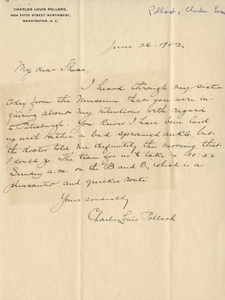 CHARLES LOUIS POLLARD,
1854 FIFTH STREET NORTHWEST,
WASHINGTON, D. C.
Pollard, Charles Louis
June 26. 1902
My dear Shear,
I heard through my sister
today from the Museum that you were in-
quiring about my intentions with regard
to Pittsburgh. You know I have been laid
up with rather a bad sprained ankle, but
the doctor told me definitely this morning that
I could go. The train for us to take is 10.50
Sunday a.m. on the B. and O., which is a
pleasanter and quicker route
Yours cordially
Charles Louis Pollard